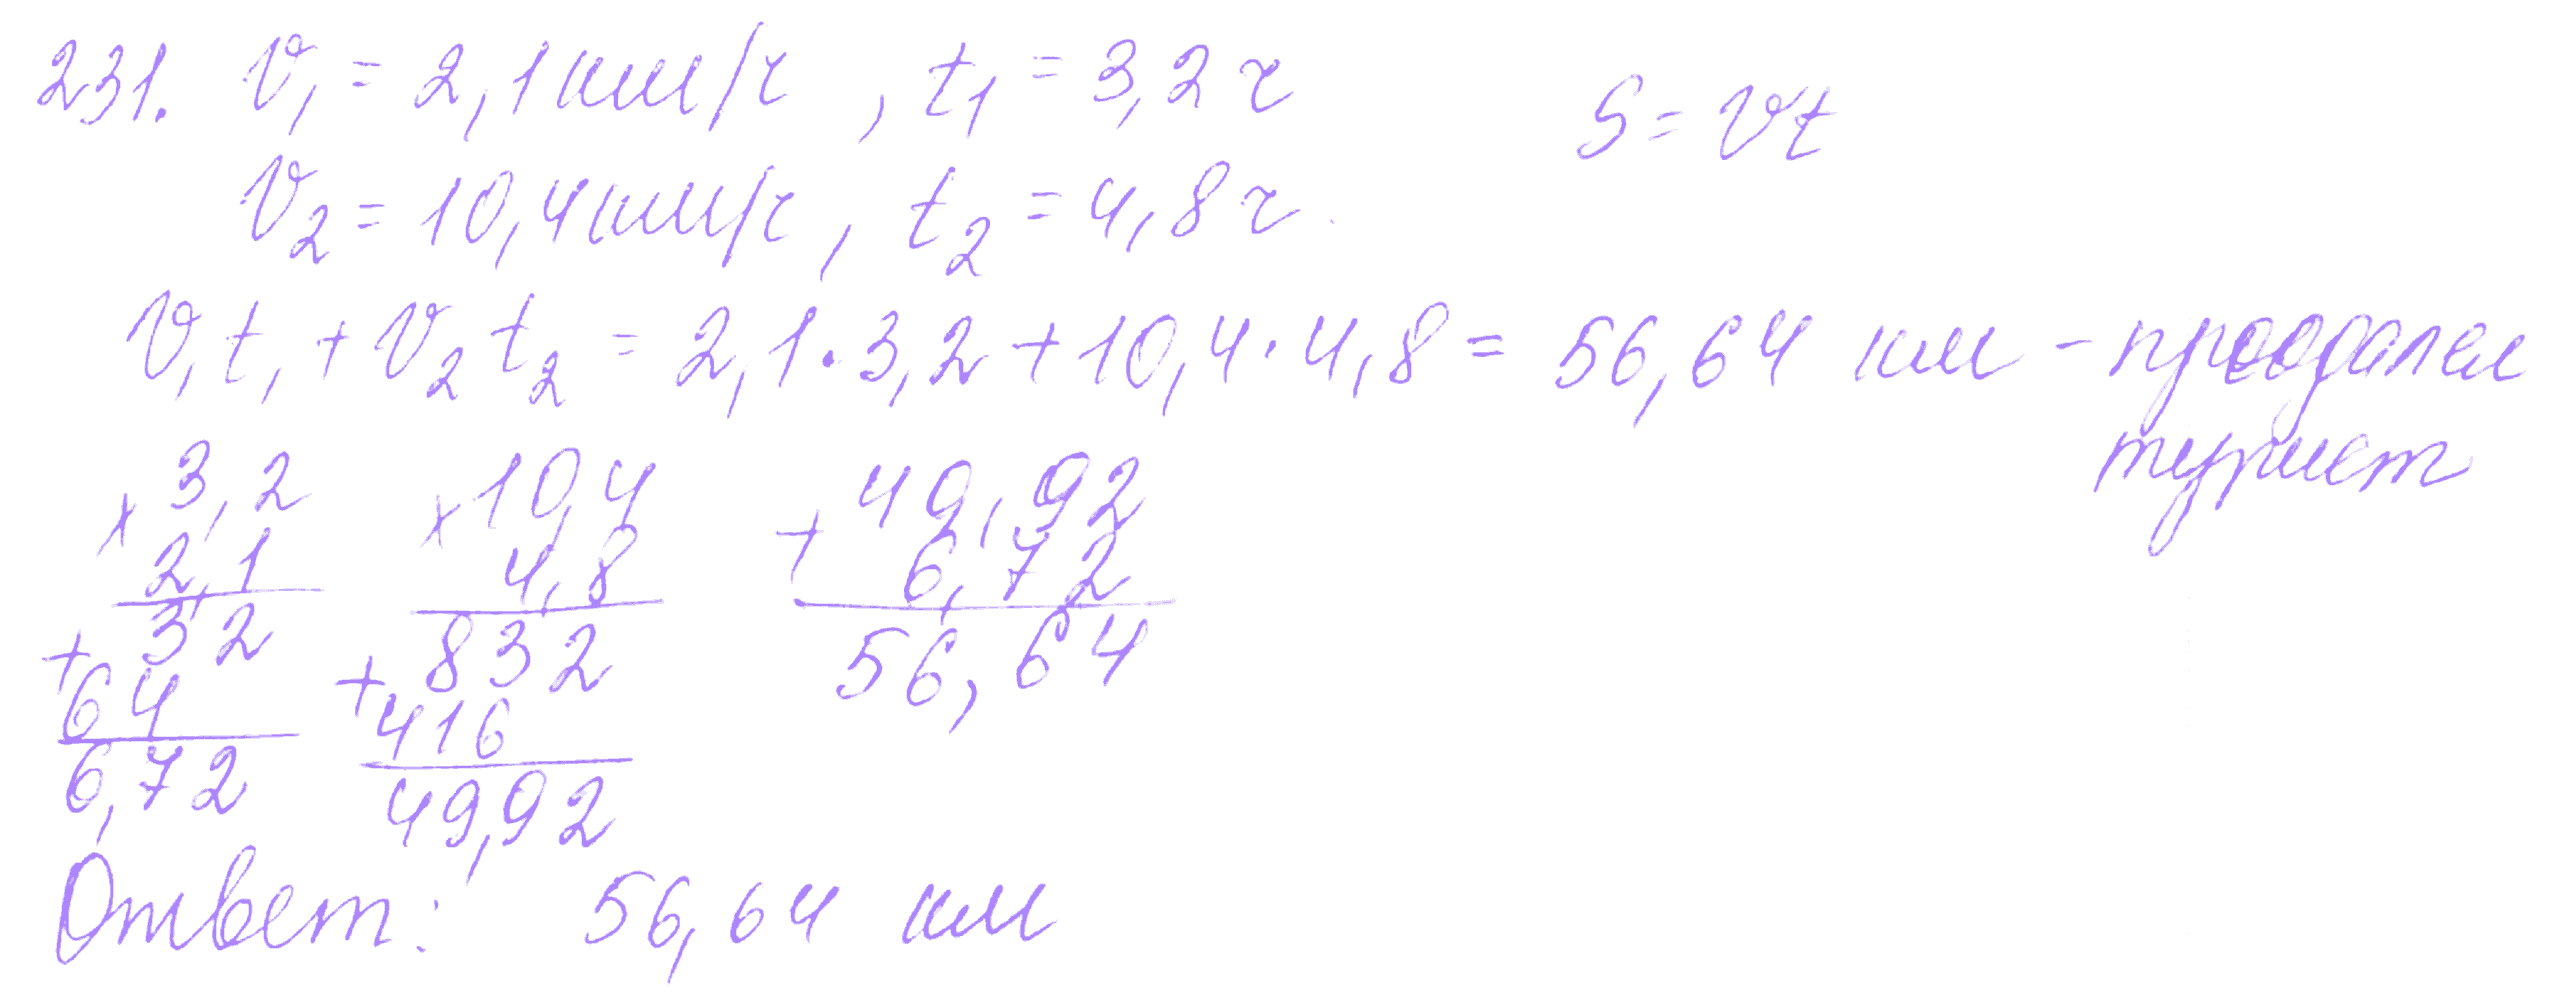 231. V₁ = 2,1 км/ч , t₁ = 3,2 ч S = Vt
V₂ = 10,4 км/ч , t₂ = 4,8 ч.
V₁t₁ + V₂t₂ = 2,1 · 3,2 + 10,4 · 4,8 = 56,64 км - преодолел
турист
× 3,2 × 10,4 + 49,92
2,1 4,8 6,72
+ 32 + 832 56,64
64 416
6,72 49,92
Ответ: 56,64 км